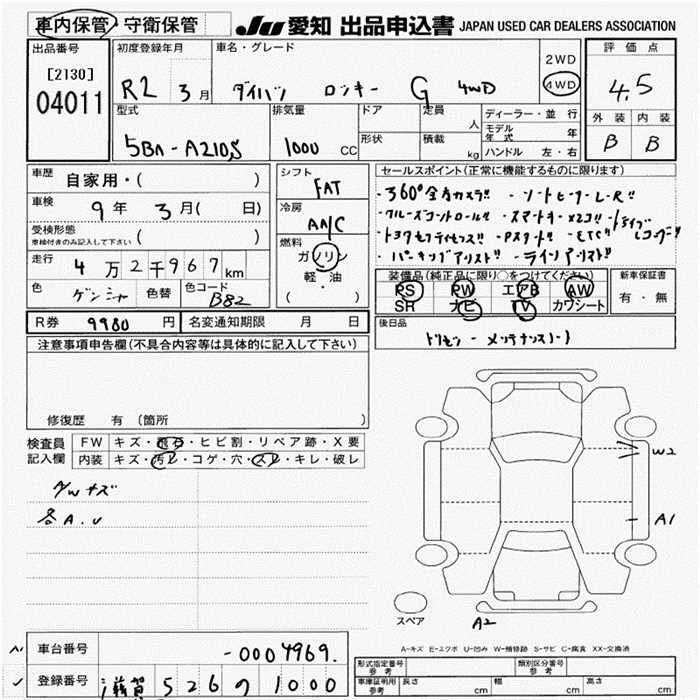 車内保管・守衛保管
JU 愛知 出品申込書 JAPAN USED CAR DEALERS ASSOCIATION
出品番号 初度登録年月 車名・グレード 評価点
[2130] R2 3月 ダイハツ ロッキー G 4WD 2WD 4WD 4.5
04011 型式 排気量 ドア 定員 人 ディーラー・並行 外装 内装
5BA-A210S 1000 CC 形状 積載 kg モデル年式 年 B B
ハンドル 左・右
車歴 自家用・( ) シフト FAT セールスポイント(正常に機能するものに限ります)
車検 9年 3月( 日) 冷房 AA/C ・360°全方カメラ!! ・シートヒーターL-R!!
受検形態 ( ) ・クルーズコントロール!! ・スマートキーX2コ!!
車検付きのみ記入して下さい 燃料 ガソリン ・Pスタート!! ・ETC!!
走行 4万2千967km 軽・油 ・パーキングアシスト!! ・ラインアシスト!!
色 色替 色コード B82 ( )
装備品(純正品に限り○をつけてください) 新車保証書
PS PW エアB AW 有・無
SR ナビ TV カワシート
R券 9980円 名変通知期限 月 日 後日品
注意事項申告欄(不具合内容等は具体的に記入して下さい)
修復歴 有 (箇所 )
検査員 FW キズ・飛石・ヒビ割・リペア跡・X要
記入欄 内装 キズ・汚レ・コゲ・穴・スレ・キレ・破レ
AWキズ
各A.U
W2
A1
A2
スペア
A-キズ E-エクボ U-凹み W-補修跡 S-サビ C-腐食 XX-交換済
車台番号 -0004969.
登録番号 滋賀 526 1000
形式指定番号 参考 類別区分番号 参考
車庫証明用 参考 長さ cm 幅 cm 高さ cm